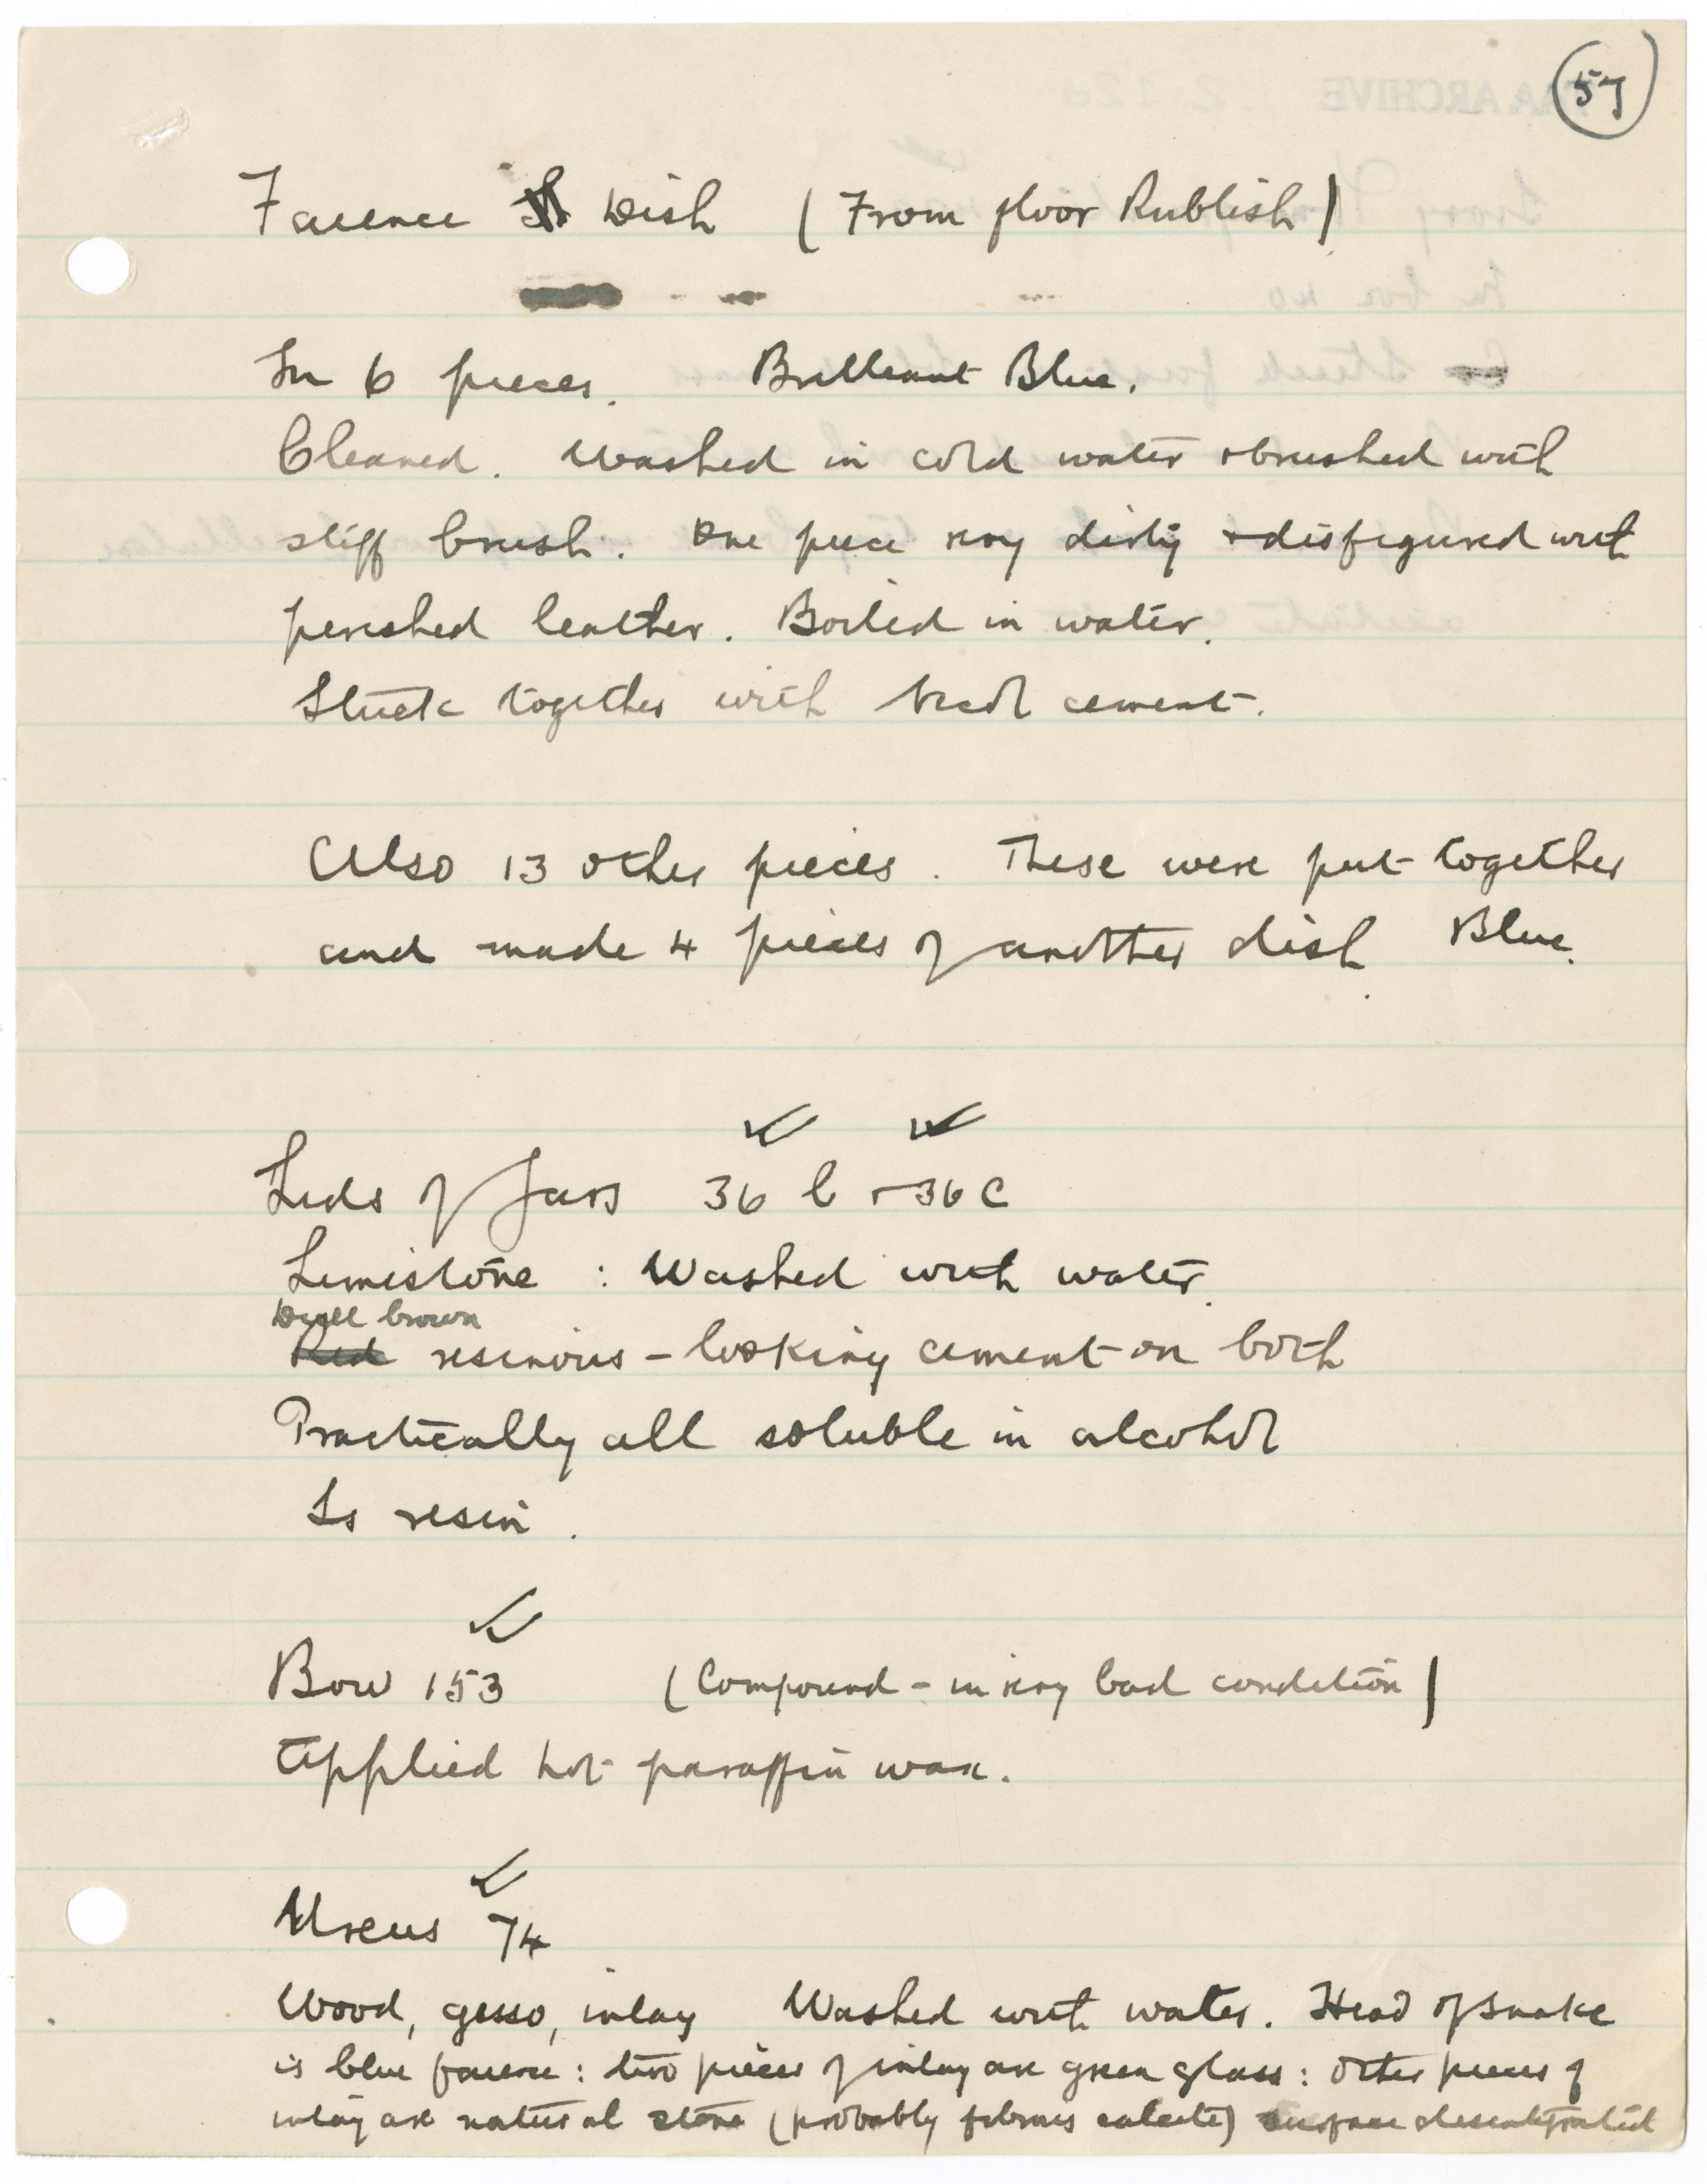 57
Faience Dish (From floor Rubbish)
In 6 pieces. Brilliant Blue.
Cleaned. Washed in cold water & brushed with
stiff brush. One piece very dirty & disfigured with
perished leather. Boiled in water.
Stuck together with cement.
Also 13 other pieces. These were put together
and made 4 pieces of another dish. Blue.
Lids of Jars 36 b & 36 c
Limestone : Washed with water.
Dull brown
Red resinous-looking cement on both
Practically all soluble in alcohol
Is resin.
Bow 153 (Compound - in very bad condition)
Applied hot paraffin wax.
Uraeus 74
Wood, gesso, inlay Washed with water. Head of snake
is blue faience : two pieces of inlay are green glass : other pieces of
inlay are natural stone (probably fibrous calcite) surface disintegrated